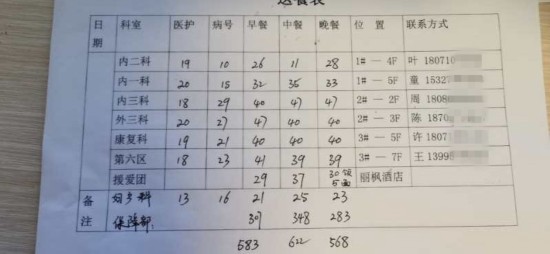 送餐表
日期 科室 医护 病号 早餐 中餐 晚餐 位置 联系方式
内二科 19 10 26 11 28 1# — 4F 叶 18071
内一科 20 15 32 35 33 1# — 5F 董 15327
内三科 18 29 40 47 47 2# — 2F 周 18080
外三科 20 27 47 40 40 2# — 3F 陈 1870
康复科 19 21 40 40 40 3# — 5F 许 1807
第六区 18 23 41 39 39 3# — 7F 王 1399
援爱团 29 37 30饭 5面 丽枫酒店
备注 13 16 21 25 23
保障部 307 348 283
583 622 568